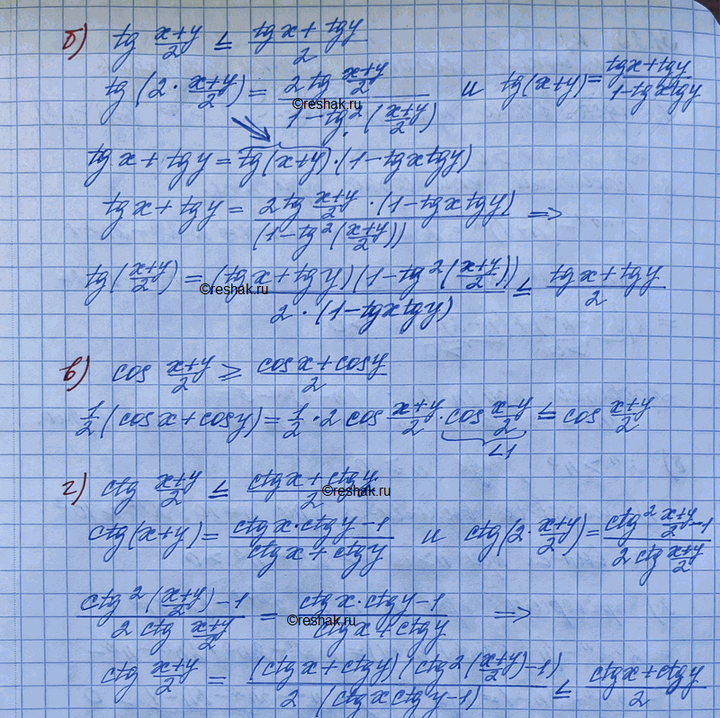 б) tg (x+y)/2 ≤ (tgx + tgy)/2
tg(2·(x+y)/2) = (2tg (x+y)/2)/(1-tg²((x+y)/2)) и tg(x+y) = (tgx+tgy)/(1-tgxtgy)
©reshak.ru
tgx + tgy = tg(x+y)·(1-tgxtgy)
tgx + tgy = (2tg (x+y)/2 ·(1-tgxtgy))/(1-tg²((x+y)/2)) =>
tg((x+y)/2) = ((tgx+tgy)(1-tg²((x+y)/2)))/(2·(1-tgxtgy)) ≤ (tgx+tgy)/2
©reshak.ru
в) cos (x+y)/2 ≥ (cosx+cosy)/2
1/2(cosx+cosy) = 1/2·2cos (x+y)/2 · cos (x-y)/2 ≤ cos (x+y)/2
<1
г) ctg (x+y)/2 ≤ (ctgx+ctgy)/2
©reshak.ru
ctg(x+y) = (ctgx·ctgy-1)/(ctgx+ctgy) и ctg(2·(x+y)/2) = (ctg² (x+y)/2 -1)/(2ctg (x+y)/2)
(ctg²((x+y)/2)-1)/(2ctg (x+y)/2) = (ctgx·ctgy-1)/(ctgx+ctgy) =>
©reshak.ru
ctg (x+y)/2 = ((ctgx+ctgy)(ctg²((x+y)/2)-1))/(2(ctgxctgy-1)) ≤ (ctgx+ctgy)/2